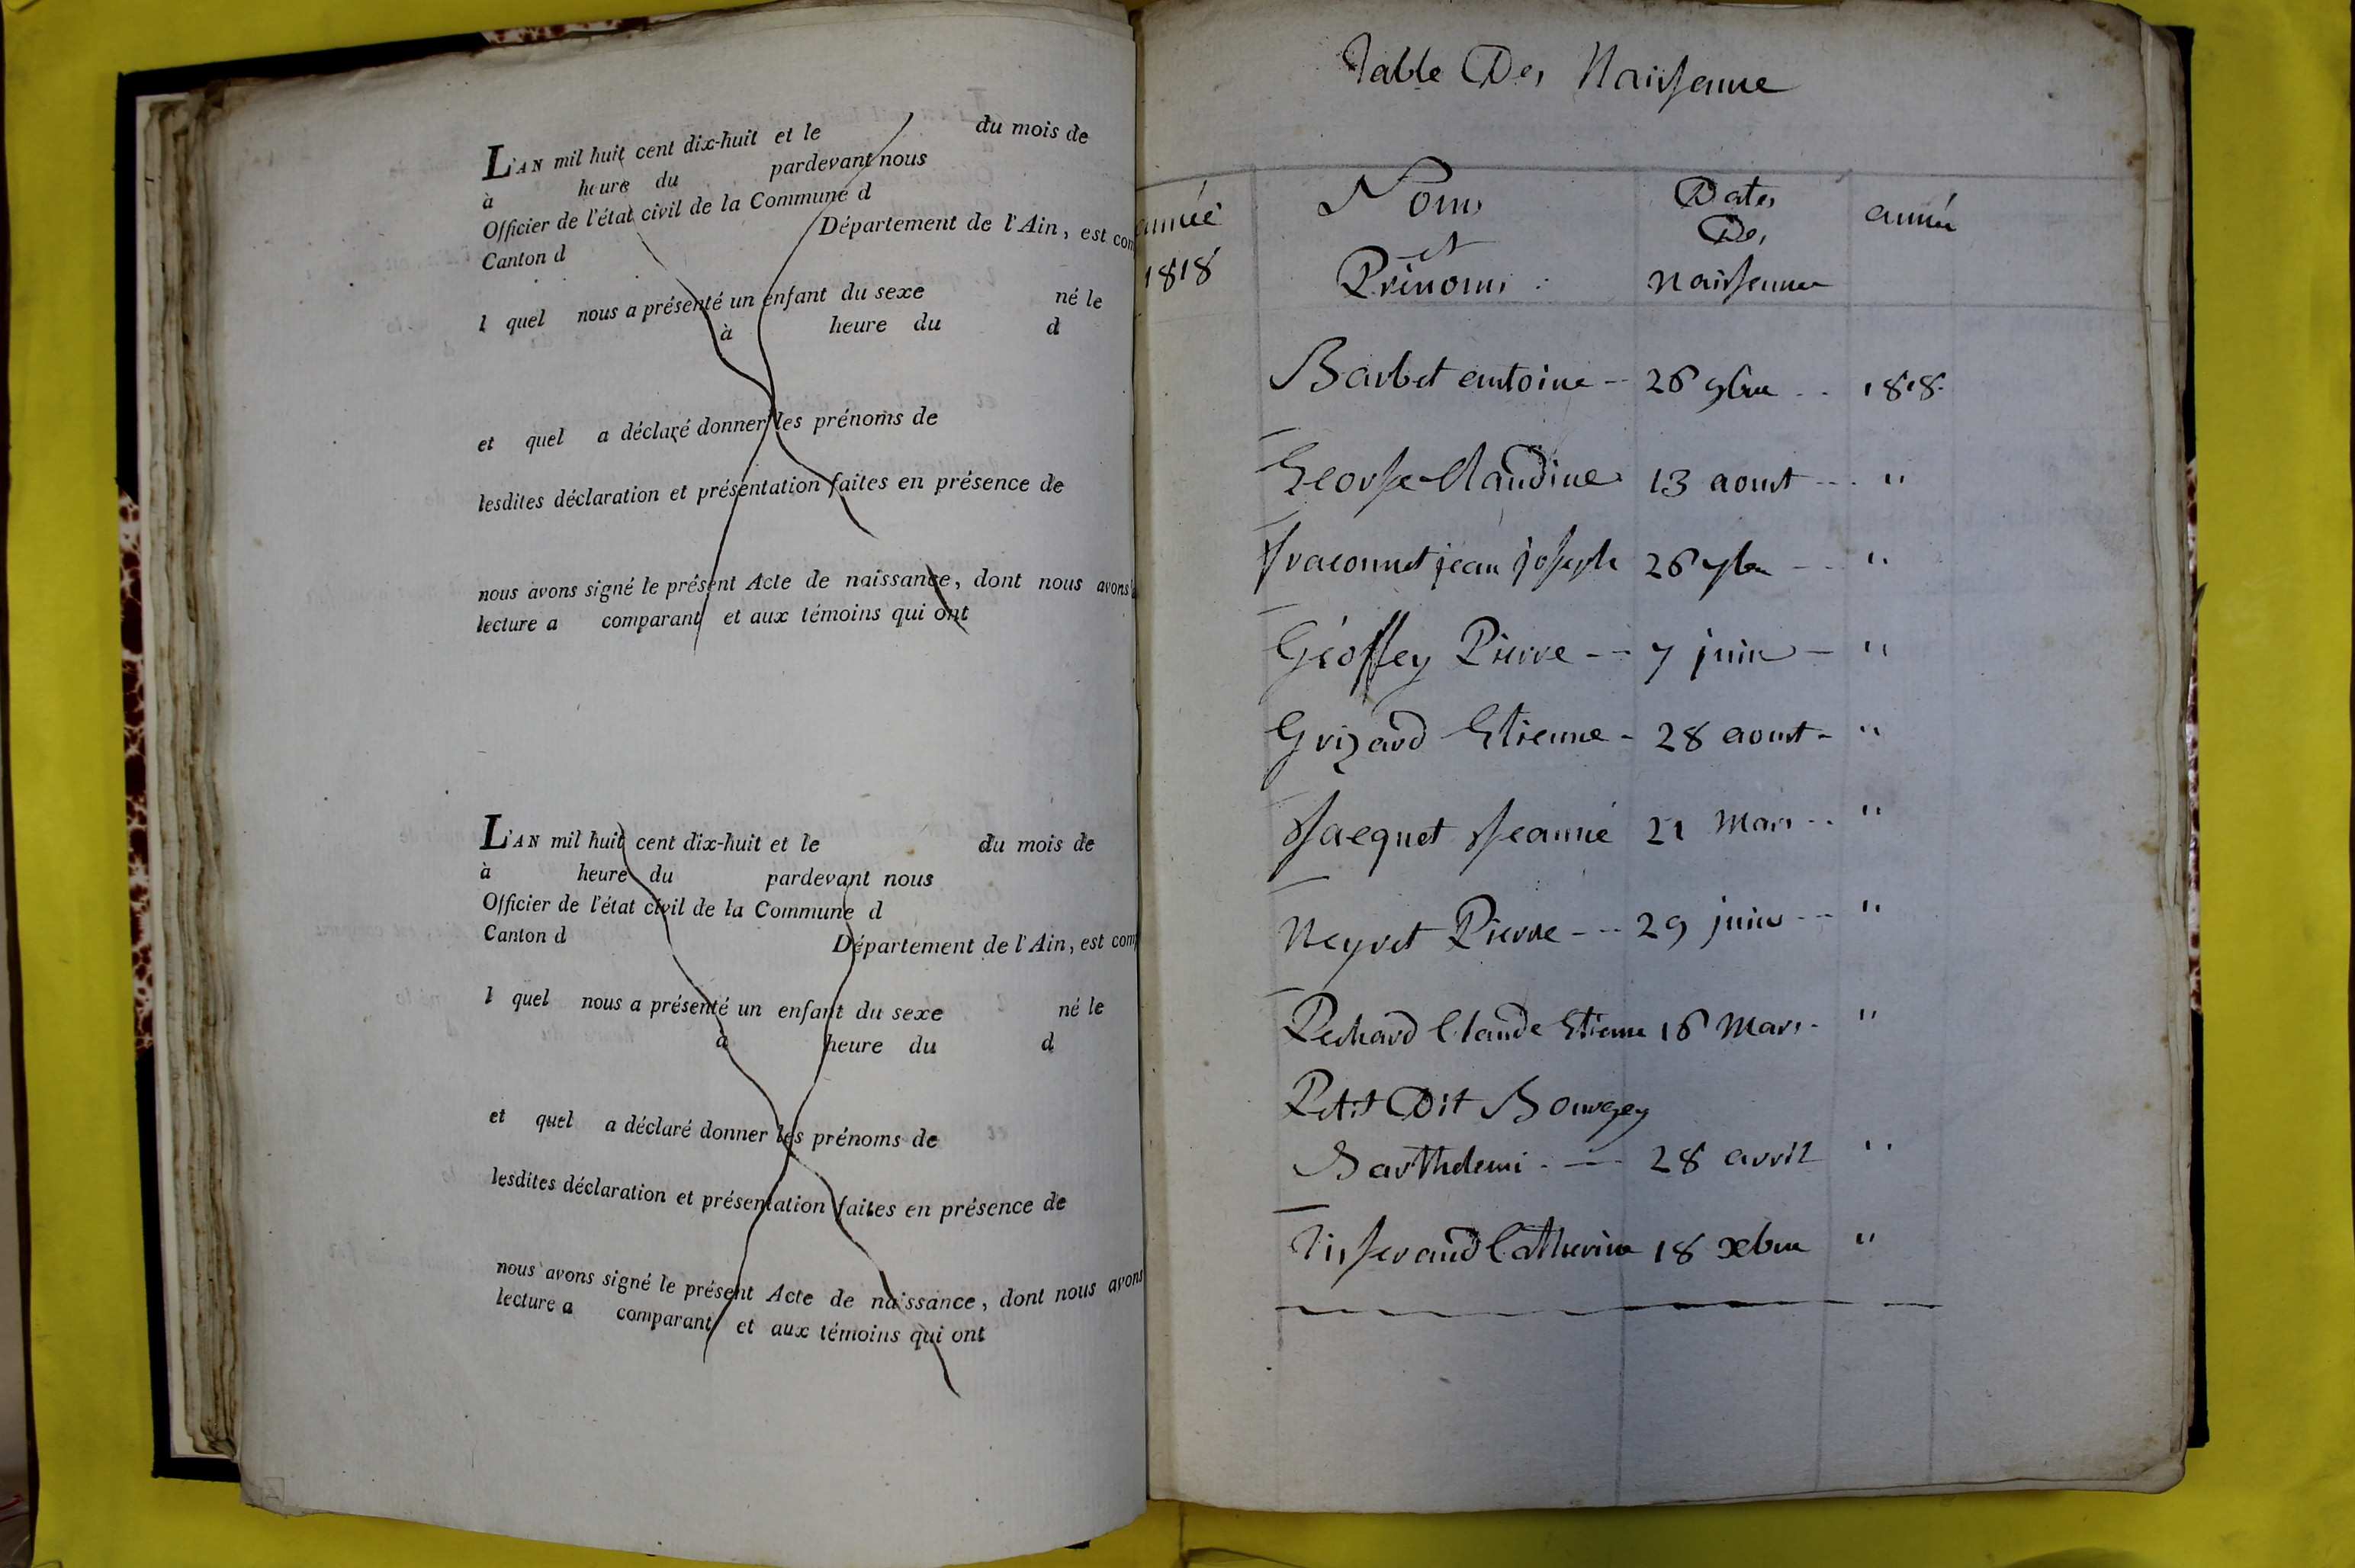 L'AN mil huit cent dix-huit et le du mois de
à heure du pardevant nous
Officier de l'état civil de la Commune d
Canton d Département de l'Ain, est com
l quel nous a présenté un enfant du sexe né le
à heure du d
et quel a déclaré donner les prénoms de
lesdites déclaration et présentation faites en présence de
nous avons signé le présent Acte de naissance, dont nous avons
lecture a comparant et aux témoins qui ont
L'AN mil huit cent dix-huit et le du mois de
à heure du pardevant nous
Officier de l'état civil de la Commune d
Canton d Département de l'Ain, est com
l quel nous a présenté un enfant du sexe né le
à heure du d
et quel a déclaré donner les prénoms de
lesdites déclaration et présentation faites en présence de
nous avons signé le présent Acte de naissance, dont nous avons
lecture a comparant et aux témoins qui ont
année
1818
Table Des Naissance
Noms et Prénoms Dates Des naissance année
Barbet antoine -- 26 9bre .. 1818.
Claudine 13 aoust --- "
jean joseph 26 7bre -- "
Géoffey Pierre -- 7 juin - "
Grizard Etienne - 28 aoust - "
Jacquet Jeanne 21 Mars -- "
Neyret Pierre --- 29 juin -- "
Pechard Claude Etienne 16 Mars - "
Petit Dit Bourgey
Barthelemi - -- 28 avril "
Tisserand Catherine 18 xbre "